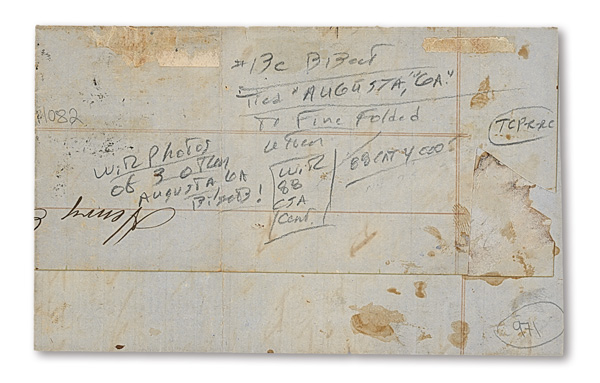 #13c Bisect
Tied "AUGUSTA, GA."
To Fine Folded
Letter
1082
TCP-R-RC
With Photos
of 3 Other
AUGUSTA GA
Bisects!
With
88
CSA
Cert.
88 CAT 4500
Henry
971